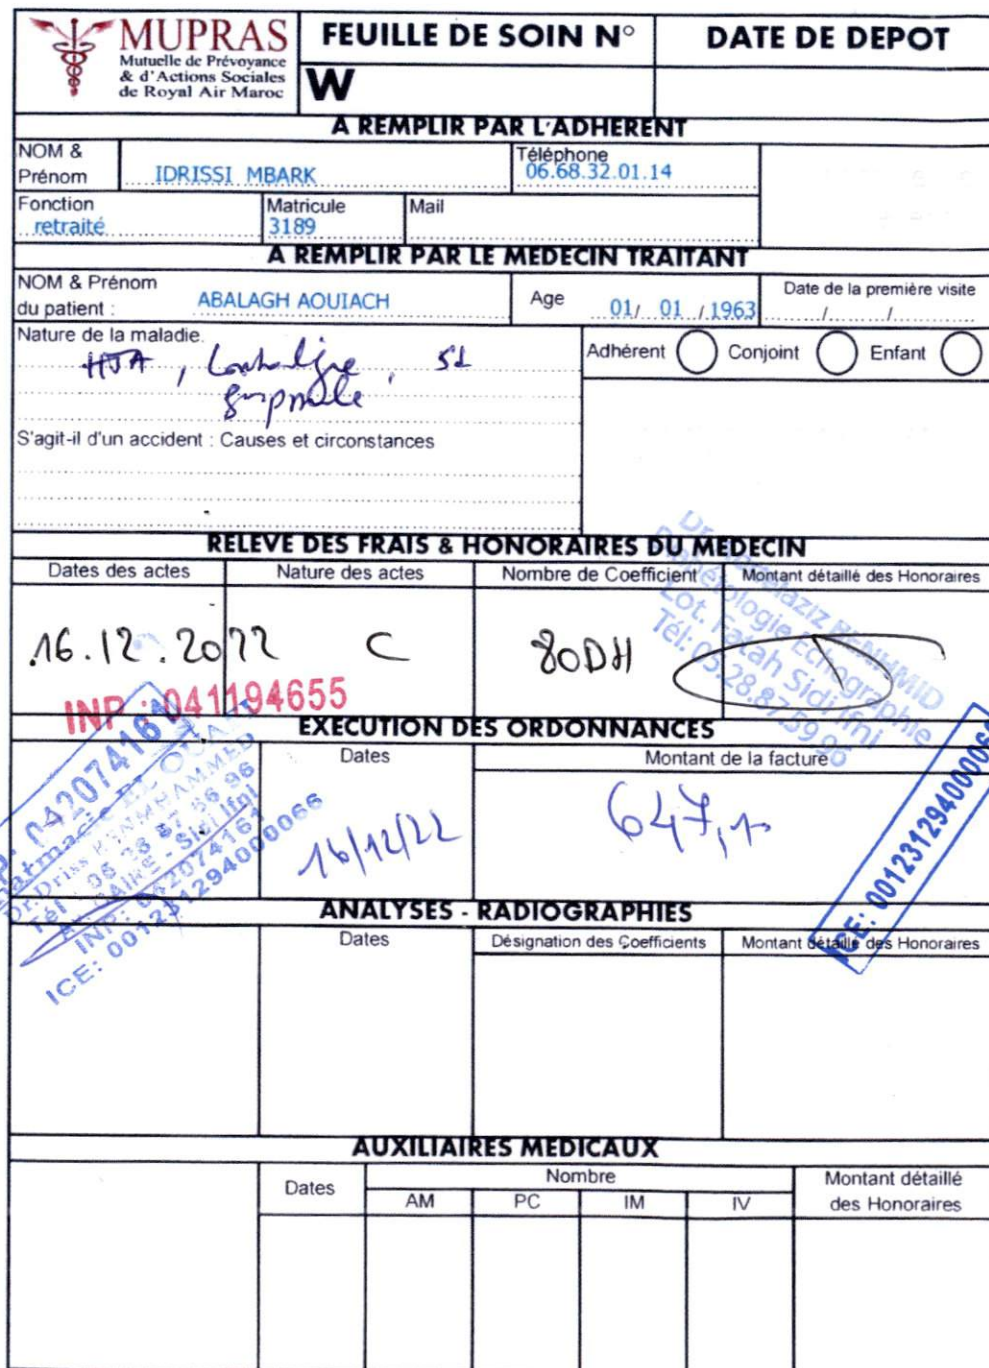 MUPRAS
Mutuelle de Prévoyance
& d'Actions Sociales
de Royal Air Maroc
FEUILLE DE SOIN N°
W
DATE DE DEPOT
A REMPLIR PAR L'ADHERENT
NOM &
Prénom
IDRISSI MBARK
Téléphone
06.68.32.01.14
Fonction
retraité
Matricule
3189
Mail
A REMPLIR PAR LE MEDECIN TRAITANT
NOM & Prénom
du patient :
ABALAGH AOUIACH
Age
01/ 01 / 1963
Date de la première visite
/ /
Nature de la maladie
Adhérent
Conjoint
Enfant
S'agit-il d'un accident : Causes et circonstances
RELEVE DES FRAIS & HONORAIRES DU MEDECIN
Dates des actes
Nature des actes
Nombre de Coefficient
Montant détaillé des Honoraires
16.12.2022 C 80DH
INP : 041194655
Lot. Fatah Sidi Ifni
EXECUTION DES ORDONNANCES
Dates
Montant de la facture
16/12/22
ICE: 001231294000066
ANALYSES - RADIOGRAPHIES
Dates
Désignation des Coefficients
Montant détaillé des Honoraires
AUXILIAIRES MEDICAUX
Dates
Nombre
AM
PC
IM
IV
Montant détaillé
des Honoraires